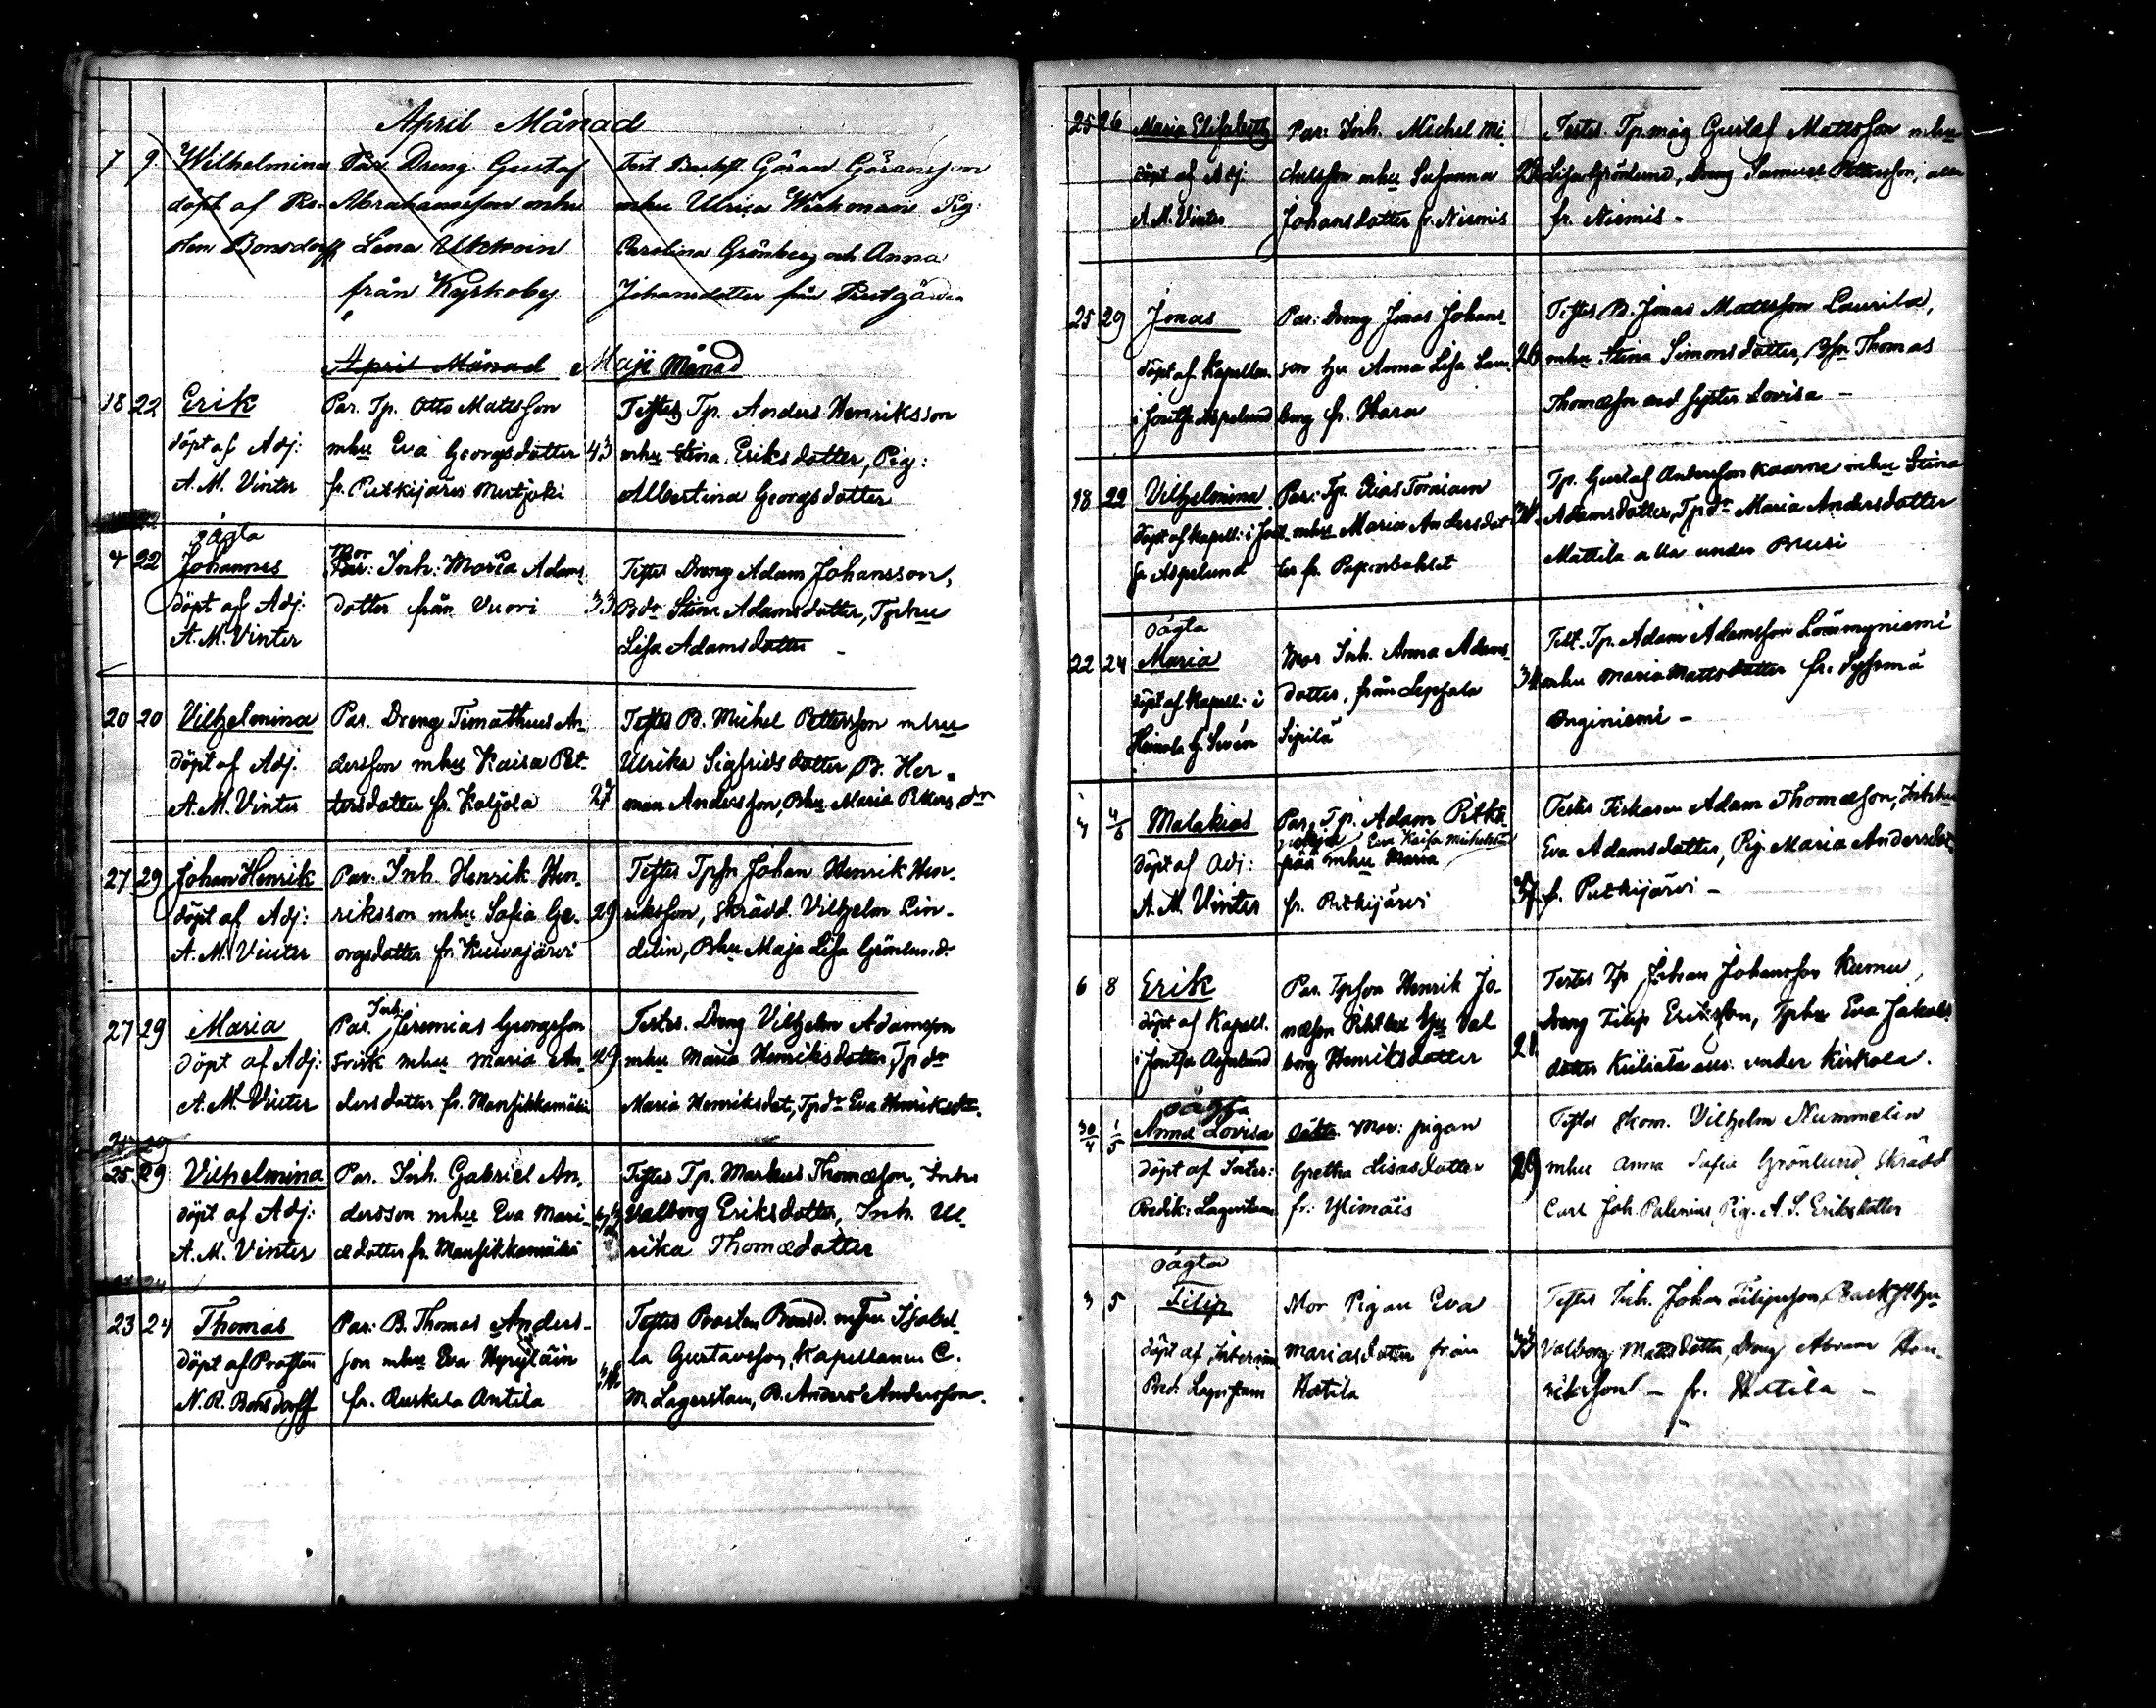 April Månad
7 9 Wilhelmina Par. Dreng Gustaf Test. Göran Göransson
döpt af Pro- Abrahamsson mhu mhu Ulrica Wirkman Pig:
sten Bonsdorff Lena Carolina Grönberg och Anna
från Kyrkoby Johansdotter från Prestgården
April Månad Maji Månad
18 22 Erik Par. Tp. Otto Mattsson Testes Tp. Anders Henriksson
döpt af Adj: mhu Eva Georgsdotter 43 mhu Stina Eriksdotter, Pig:
A. M. Vinter fr. Pitkijärvi Albertina Georgsdotter
oägta
4 22 Johannes Mor Par: Inh: Maria Adams Testes Dreng Adam Johansson,
döpt af Adj: dotter från Vuori 33 Bdr Stina Adamsdotter, Tphu
A. M. Vinter Lisa Adamsdotter
20 20 Vilhelmina Par. Dreng Timotheus An- Testes B. Michel Pettersson mhu
döpt af Adj. dersson mhu Kaisa Pet- Ulrika Sigfridsdotter, B. Her-
A. M. Vinter tersdotter fr. Koljola 27 man Andersson, Bhu Maria
27 29 Johan Henrik Par. Inh. Henrik Hen- Testes Tpsn Johan Henrik Hen-
döpt af Adj: riksson mhu Sofia Ge- 29 riksson, Skrädd. Vilhelm Lin-
A. M. Vinter orgsdotter fr. Kuivajärvi delin, Bhu Maja Lisa
27 29 Maria Par. Inh. Jeremias Georgsson Testes. Dreng Vilhelm Adamsson
döpt af Adj: Frisk mhu Maria An- 29 mhu Maria Henriksdotter, Tpdr
A. M. Vinter dersdotter fr. Mansikkamäki Maria Henriksdot, Tpdr Eva Henriksdtr.
25 29 Vilhelmina Par. Inh. Gabriel An- Testes Tp. Markus Thomasson, Inhu
döpt af Adj: dersson mhu Eva Mari- Valborg Eriksdotter, Inh. Ul-
A. M. Vinter ædotter fr. Mansikkamäki rika Thomædotter
23 24 Thomas Par: B. Thomas Anders- Testes Prosten Bonsd. mfru Isabel-
döpt af Prosten son mhu Eva la Gustavsson, Kapellanen C.
N. R. Bonsdorff fr. Antila M. Lagerstam, B. Anders Andersson.
25 26 Maria Elisabeth Par: Inh. Michel Mi- Testes Tp.måg Gustaf Mattsson mhu
döpt af Adj: chelsson mhu Susanna Lisa Grönlund, Dreng Samuel Pettersson, alla
A. M. Vinter Johansdotter f. Niemis fr. Niemis -
25 29 Jonas Par: Dreng Jonas Johans- Testes B. Jonas Mattsson Laurila,
döpt af Kapellan. son hu Anna Lisa Lam- 26 mhu Stina Simonsdotter, Thomas
Aspelund berg fr. Hara Thomasson och syster Lovisa -
18 22 Vilhelmina Par: Tp. Elias Torniain Tp. Gustaf Andersson Kaarne mhu Stina
döpt af Kapell: i mhu Maria Andersdot- Adamsdotter, Tpdr Maria Andersdotter
Aspelund ter fr. Mattila alla under
oägta
22 24 Maria Mor Inh. Anna Adams- Test. Tp. Adam Adamsson
döpt af Kapell: i dotter, från mhu Maria Mattsdotter fr. Sysmä
Heinola Sipilä Onginiemi -
3 4/5 Malakias Par. Tp. Adam Testes Adam Thomasson,
Eva Kaisa
döpt af Adj: mhu Maria Eva Adamsdotter, Pig. Maria
A. M. Vinter fr. Pitkijärvi fr. Pitkijärvi -
6 8 Erik Par. Tpson Henrik Jo- Testes Tp Johan Johansson Kumu,
döpt af Kapell. hu Val- Dreng Filip Eriksson, Tphu Eva Jakobs
Aspelund borg Henriksdotter dotter under Kirkola.
oägta
30/4 1/5 Anna Lovisa Mor: pigan Testes Skom. Vilhelm Nummelin
döpt af Inter: Gretha Lisasdotter 29 mhu Anna Sofia Grönlund, Skrädd
Predik: Lagerstam fr: Ylimäis Carl Joh. Palenius, Pig. A. S. Eriksdotter
oägta
3 5 Filip Mor Pigan Eva Testes Inh. Johan Filipsson,
döpt af interims mariasdotter från 33 Valborg Mattsdotter, Dreng Abram Hen-
Pred. Lagerstam Hatila riksson - fr. Hatila -